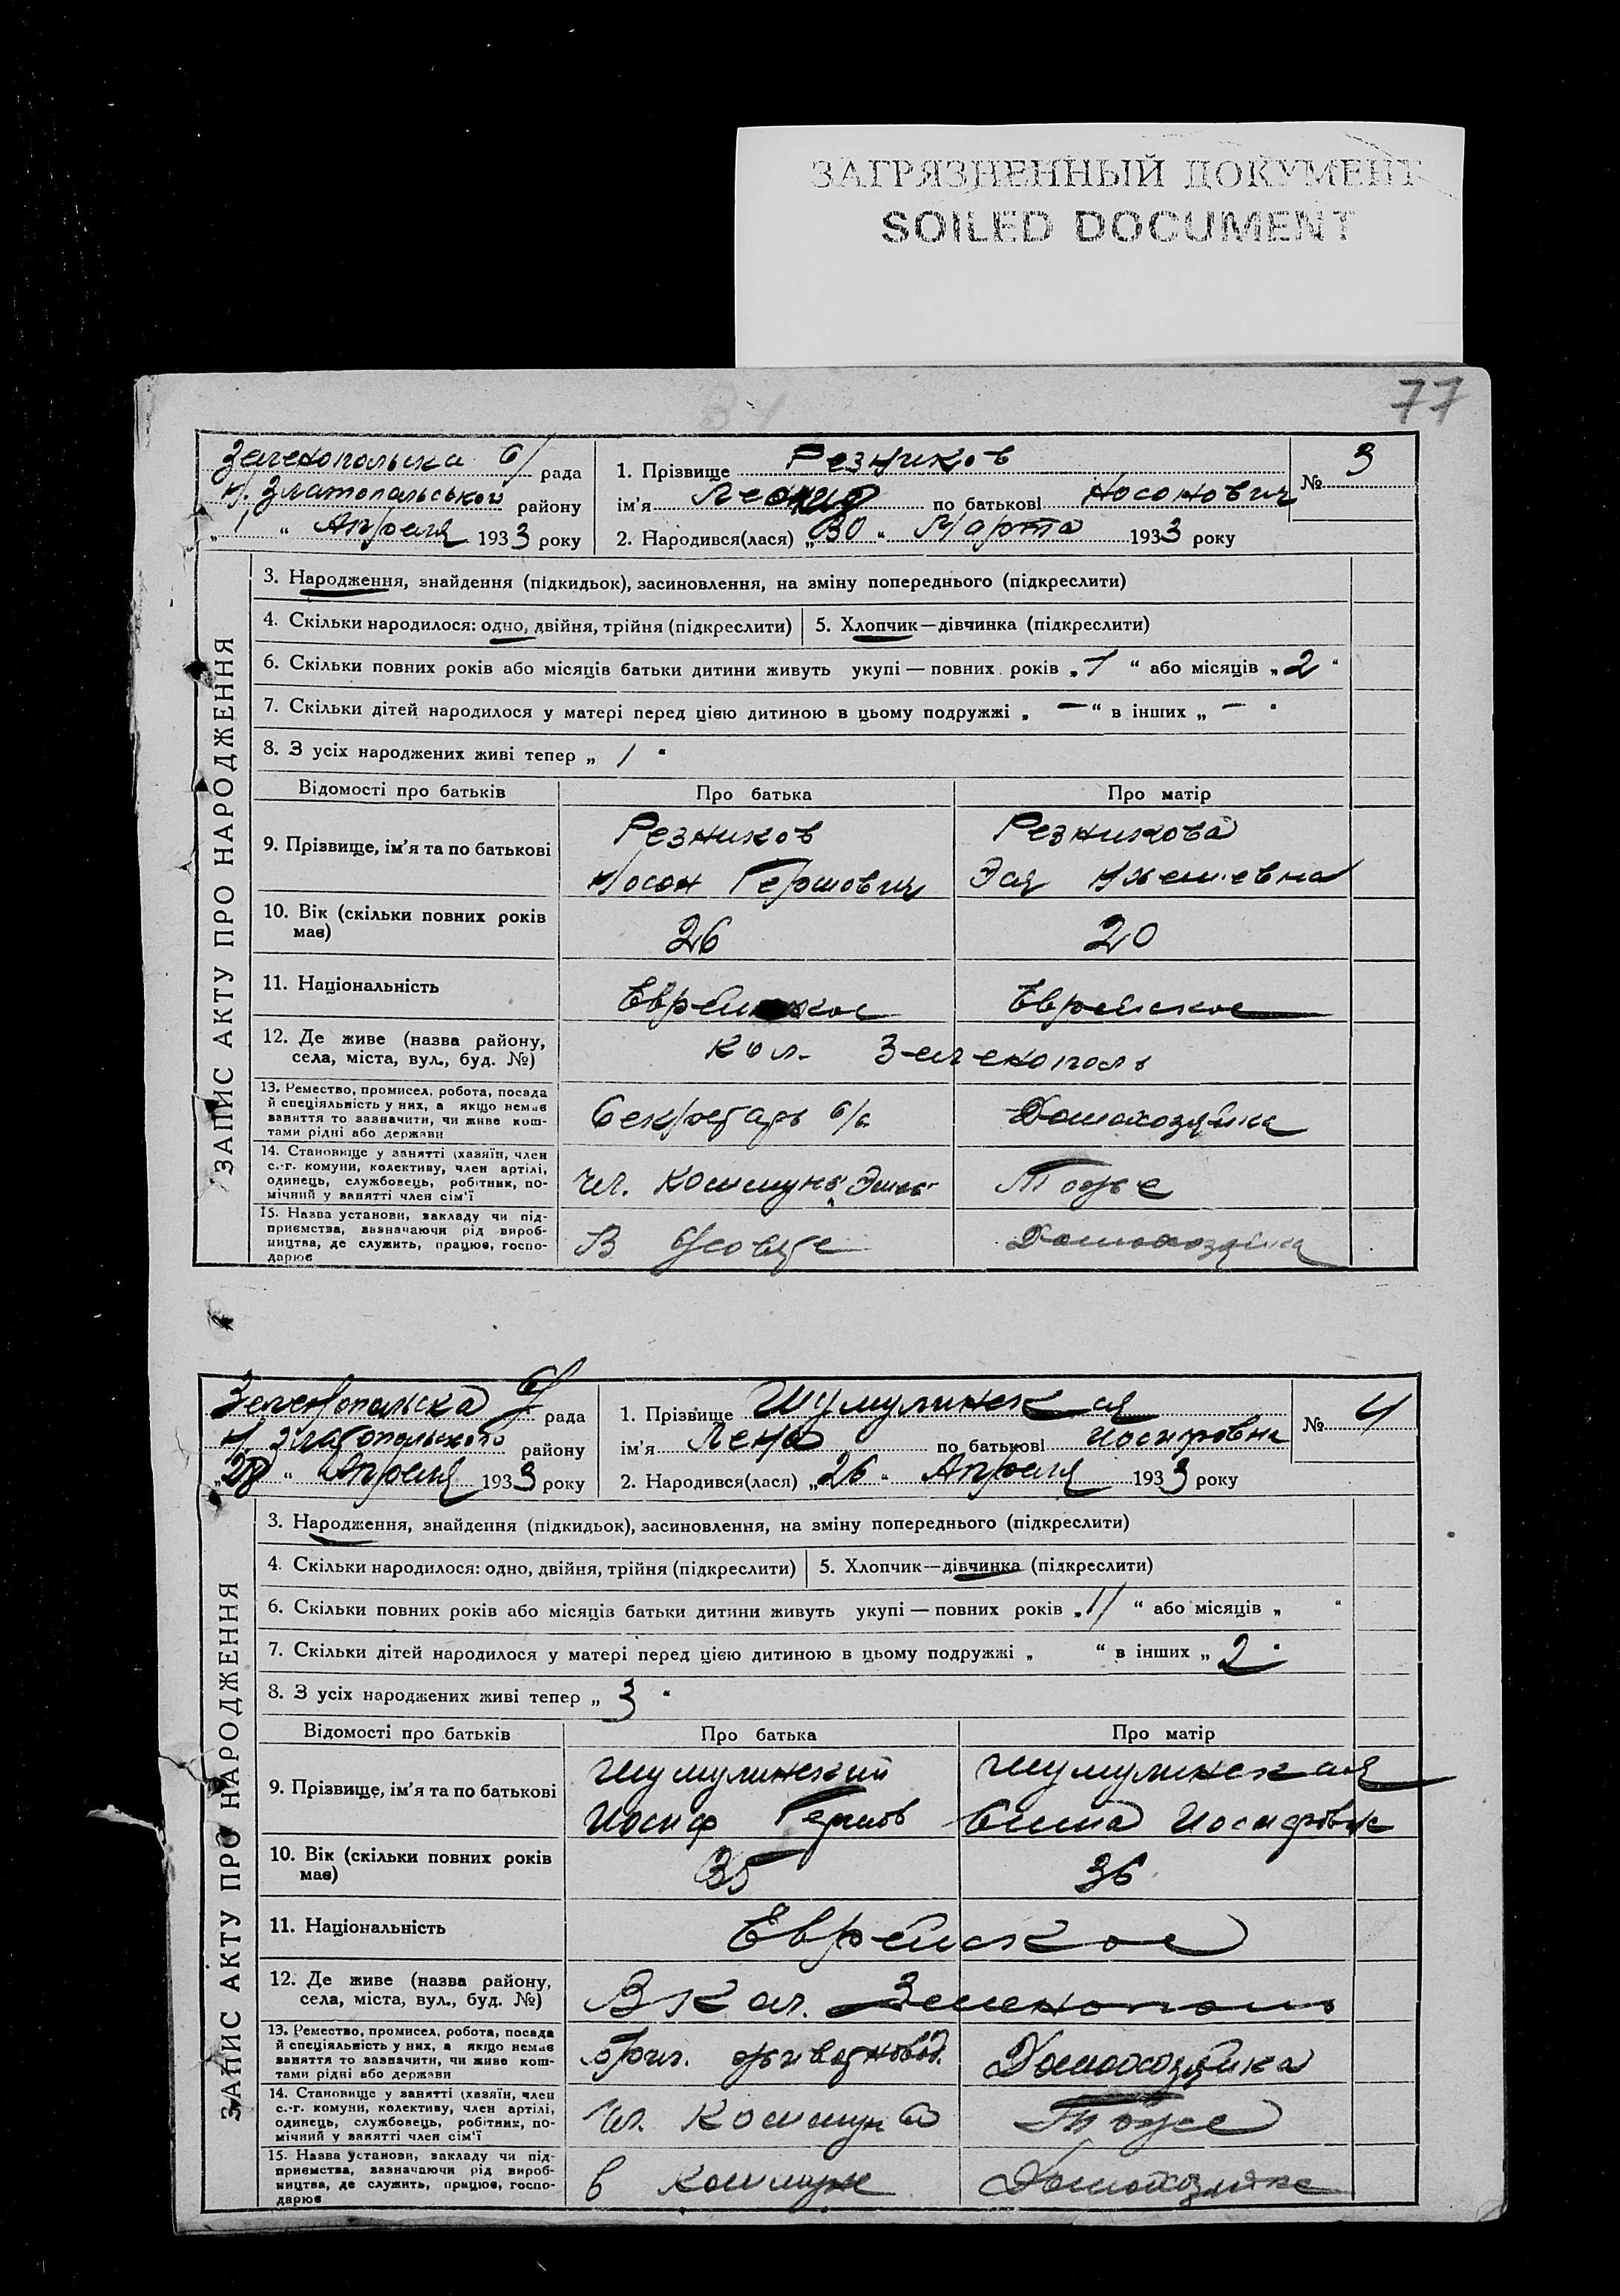 ЗАГРЯЗНЕННЫЙ ДОКУМЕНТ
SOILED DOCUMENT
77
Зеленопольска с/ рада
Н. Златопольской району
„ 1 “ Апреля 1933 року
1. Прізвище Резников
ім'я Леонид по батькові Носонович
2. Народився(лася) „ 30 “ Марта 1933 року
№ 3
ЗАПИС АКТУ ПРО НАРОДЖЕННЯ
3. Народження, знайдення (підкидьок), засиновлення, на зміну попереднього (підкреслити)
4. Скільки народилося: одно, двійня, трійня (підкреслити) 5. Хлопчик—дівчинка (підкреслити)
6. Скільки повних років або місяців батьки дитини живуть укупі — повних років „ 1 “ або місяців „ 2 “
7. Скільки дітей народилося у матері перед цією дитиною в цьому подружжі „ — “ в інших „ — “
8. З усіх народжених живі тепер „ 1 “
Відомості про батьків Про батька Про матір
9. Прізвище, ім'я та по батькові
Резников Резникова
Носон Гершович Эся
10. Вік (скільки повних років має) 26 20
11. Національність Еврейское Еврейское
12. Де живе (назва району, села, міста, вул., буд. №) Кол. Зеленополь
13. Ремество, промисел, робота, посада й спеціяльність у них, а якщо немає заняття то зазначити, чи живе коштами рідні або держави
Секретарь с/с Домохозяйка
14. Становище у занятті (хазяїн, член с.-г. комуни, колективу, член артілі, одинець, службовець, робітник, помічний у занятті член сім'ї
Чл. Коммуны Тоже
15. Назва установи, закладу чи підприємства, зазначаючи рід виробництва, де служить, працює, господарює
В Совете Домохозяйка
Зеленопольска с/ рада
Н. Златопольского району
„ 28 “ Апреля 1933 року
1. Прізвище Шумулинская
ім'я Лена по батькові Иосифовна
2. Народився(лася) „ 26 “ Апреля 1933 року
№ 4
ЗАПИС АКТУ ПРО НАРОДЖЕННЯ
3. Народження, знайдення (підкидьок), засиновлення, на зміну попереднього (підкреслити)
4. Скільки народилося: одно, двійня, трійня (підкреслити) 5. Хлопчик—дівчинка (підкреслити)
6. Скільки повних років або місяців батьки дитини живуть укупі — повних років „ 11 “ або місяців „ “
7. Скільки дітей народилося у матері перед цією дитиною в цьому подружжі „ “ в інших „ 2 “
8. З усіх народжених живі тепер „ 3 “
Відомості про батьків Про батька Про матір
9. Прізвище, ім'я та по батькові
Шумулинский Шумулинская
Иосиф Гершов Иосифовн
10. Вік (скільки повних років має) 35 36
11. Національність Еврейское
12. Де живе (назва району, села, міста, вул., буд. №) В Кол. Зеленополь
13. Ремество, промисел, робота, посада й спеціяльність у них, а якщо немає заняття то зазначити, чи живе коштами рідні або держави
Бриг. животновод. Домохозяйка
14. Становище у занятті (хазяїн, член с.-г. комуни, колективу, член артілі, одинець, службовець, робітник, помічний у занятті член сім'ї
Чл. Коммуны Тоже
15. Назва установи, закладу чи підприємства, зазначаючи рід виробництва, де служить, працює, господарює
в Коммуне Домохозяйка